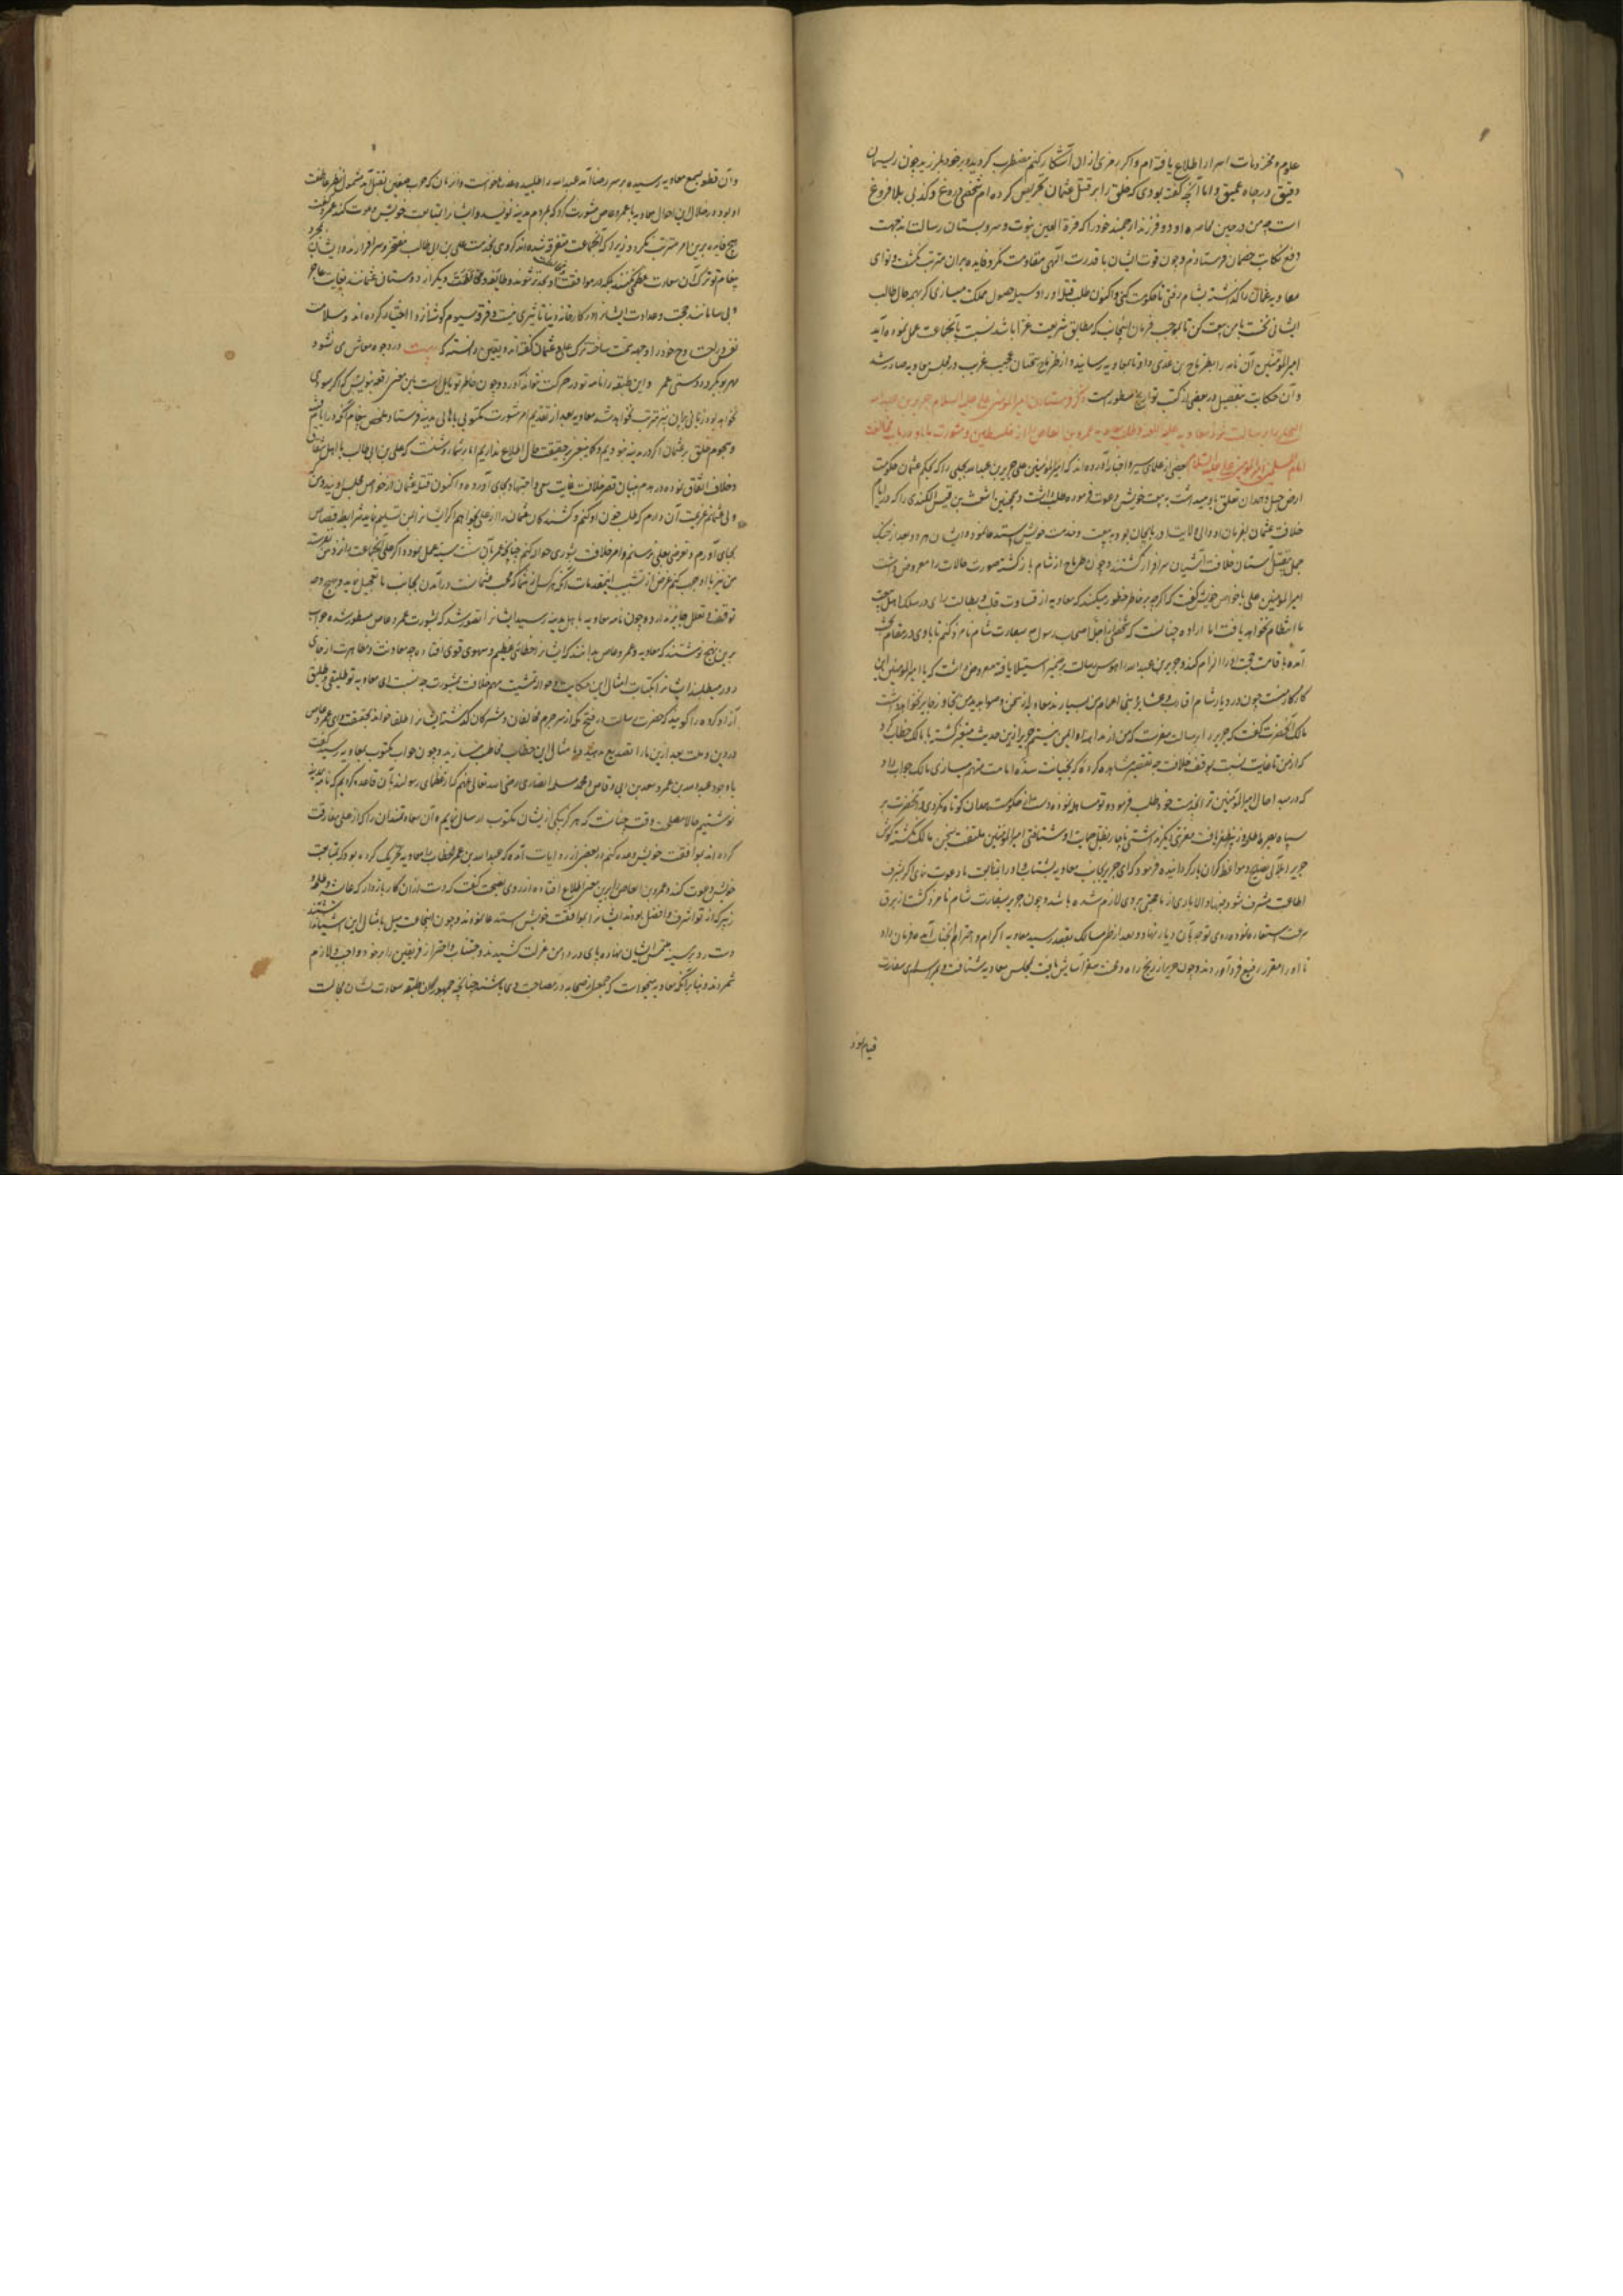 علوم و مخزونات اسرار اطلاع یافته‌ام و اگر رمزی از ان آشکار کنم مضطرب کردیده بر خود بلرزید چون ریسمان
دقیق در چاه عمیق و اما آنچه گفته بودی که خلق را بر قتل عثمان تحریص کرده‌ام سخنی دروغ و کذبی بلا فروغ
است چه من در حین محاصره او دو فرزند ارجمند خود را که قرة العین نبوت و سرو بستان رسالت‌اند جهت
دفع فرستادم و چون قوت ایشان با قدرت الهی مقاومت نکرد فایده بران مترتب نکشت و تو ای
معاویه عثمان را گذاشته بشام رفتی تا حکومت کنی و اکنون طلب قتله او را وسیله حصول مملکت میسازی اگر بهمه حال طالب
ایشانی نخست با من بیعت کن تا بموجب فرمان که مطابق شریعت غرا باشد نسبت بآنجماعت عمل نموده آید
امیر المؤمنین آن نامه را بطرماح بن عدی داد تا بمعاویه رسانید و از طرماح سخنان عجیب غریب در مجلس معاویه صادر شد
و آن حکایت بتفصیل در بعضی از کتب تواریخ مسطور است ذکر فرستادن امیر المؤمنین علی علیه السلام جریر بن عبد الله
البجلی را برسالت نزد معاویه و طلب معاویه عمرو بن العاص را از فلسطین و مشورت با او در باب مخالفت
امام المسلمین امیر المؤمنین علی علیه السلام بعضی از علمای سیر و اخبار آورده‌اند که امیر المؤمنین علی جریر بن عبد الله بجلی را که بحکم عثمان حکومت
ارض جبل و همدان تعلق باو میداشت به بیعت خویش دعوت فرموده طلب داشت و همچنین اشعث بن قیس الکندی را که در ایام
خلافت عثمان بفرمان او والی ولایت اذربایجان بود به بیعت و خدمت خویش استدعا نموده ایشان هر دو بعد از جنک
جمل بتقبیل آستان خلافت آشیان سرافراز گشتند و چون طرماح از شام باز گشته صورت حالات را معروض داشت
امیر المؤمنین علی با خواص خویش گفت که اگرچه بر خاطر خطور میکند که معاویه از قساوت قلب و بطالت رای در سلک اهل بیعت
ما انتظام نخواهد یافت اما اراده چنانست که شخصی از اجل اصحاب رسول بسفارت شام نامزد کنم تا با وی در مقام
آمده باقامت حجت او را الزام کند و جریر بن عبد الله را هوس رسالت بر ضمیر استیلا یافته معروض داشت که یا امیر المؤمنین این
کار کار منست چون در دیار شام اقارب و عشایر و بنی اعمام من بسیارند معاویه از سخن و صوابدید من تجاوز جایز نخواهد داشت
مالک آنحضرت گفت که جریر را برسالت مفرست که من از مداهنه او ایمن نیستم جریر ازین حدیث متغیر گشته با مالک خطاب کرد
که از من تا غایت نسبت بموقف خلافت چه تقصیر مشاهده کرده که بخیانت سده امامت متهم میسازی مالک جواب داد
که در مبد احوال امیر المؤمنین ترا بخدمت خود طلب فرموده تو مساهله نموده دست از حکومت همدان کوتاه نکردی و آنحضرت بر
سپاه بصره مظفر و فیروز یافت مفری دیگر نداشتی ناچار بظل حمایت او شتافتی امیر المؤمنین ملتفت بسخن مالک نکشته گوش
جریر را بلآلی نصایح و مواعظ گران بار گردانیده فرمود که ای جریر بجانب معاویه بشتاب و او را بمتابعت ما دعوت نمای اگر بشرف
اطاعت مشرف شود فبها و الا باری از ما حجتی بر وی لازم شده باشد و چون جریر بسفارت شام نامزد گشت از برق
سرعت استعاره نموده روی توجه بآن دیار نهاد و بعد از طی مسالک بمقصد رسید معاویه اکرام و احترام آنجناب فرمان داد
تا او را در مقر رفیع فرود آوردند و چون جریر از رنج راه و محنت سفر آسایش یافت بمجلس معاویه شتافت و بمراسم سفارت
قیام نمود
و آن قطعه بسمع معاویه رسیده بر سر رضا آمد عبد الله را طلبیده عذرها خواست و از زمان که حرب صفین بفیصل آمد مشمول نظر عاطفت
او بود در خلال این احوال معاویه با عمرو عاص مشورت کرد که بمردم مدینه نویسد و ایشان را بمتابعت خویش دعوت کند عمرو گفت
هیچ فایده برین امر مترتب نگردد زیرا که آنجماعت متفرق شده‌اند گروهی بخدمت علی بن ابی طالب مفتخر و سرافرازند و ایشان
پیغام تو ترک آن سعادت عظمی نکنند بلکه در موافقت او بجدتر شوند و طایفه دیگر از دوستان عثمانند بغایت عاجز
و بی سامانند محبت و عداوت ایشان در کارخانه دنیا تاثیری نیست و فرقه سیوم گوشه انزوا اختیار کرده‌اند و سلامت
نفس و راحت روح خود را وجهه همت ساخته ترک علی و عثمان گفته‌اند و یقین دانسته که در وجوه معاش می نشود
مهر بوبکر و دوستی عمر و این طبقه را نامه تو در حرکت نتواند آورد و چون خاطر تو مایل است باین معنی رقعه بنویس که اگر سودی
نخواهد بود زیانی بران نیز مترتب نخواهد شد معاویه بعد از تقدیم امر مشورت مکتوبی باهالی مدینه فرستاد ملخص پیغام آنکه در ایام
و هجوم خلق بر عثمان اگر در مدینه نبودیم و کما ینبغی بر حقیقت حال اطلاع نداریم اما بر شما روشنست که علی بن ابی طالب با اهل شقاق
و خلاف اتفاق نموده در هدم بنیان قصر خلافت غایت سعی و اجتهاد بجای آورده و اکنون قتله عثمان از خواص مجلس اویند و من
ولی عثمانم عزیمت آن دارم که طلب خون او کنم و کشندگان عثمان را از علی بخواهم اگر ایشان را بمن تسلیم نماید شرایط قصاص
بجای آورم و تعرضی بعلی نرسانم و امر خلافت بشوری حواله کنم چنانچه عمر بآن سنت سنیه عمل نموده و اگر علی آنجماعت را نزد من نفرستد
من نیز با او حرب کنم غرض از تشبیب این مقدمات آنکه هر کس از شما که محب عثمانست در آمدن بجانب ما تعجیل نماید و بهیچ وجه
توقف و تعلل جایز ندارد و چون نامه معاویه باهل مدینه رسید ایشان را تصور شد که بمشورت عمرو عاص مسطور شده جواب
برین نهج نوشتند که معاویه و عمرو عاص بدانند که ایشان را خطائی عظیم و سهوی قوی افتاده چه معاونت و مظاهرت از جای
دور میطلبند ایشان را بکتابت امثال این حکایات در تمشیت مهم خلافت بمشورت چه نسبت ای معاویه تو طلیقی و طلیق
آزاد کرده را گویند که حضرت رسالت در فتح مکه از سر جرم مخالفان و مشرکان گذشت ایشان را طلقا خواند
درین وقت بعد ازین ما را تصدیع مدهید و بامثال این خطاب مخاطب مسازید و چون جواب مکتوب بمعاویه رسید گفت
با وجود عبد الله بن عمر و سعد بن ابی وقاص و محمد مسلمه انصاری رضی الله تعالی عنهم که از عظمای رسولند بآن قاعده کردیم که نامه بمدینه
نوشتیم حالا مصلحت وقت چنانست که بهر یکی از ایشان مکتوب ارسال نمایم و آن سعادتمندان را که از علی مفارقت
کرده‌اند بموافقت خویش وعده کنم در بعضی از روایات آمده که عبد الله بن عمر الخطاب را معاویه تحریک کرده بود که بمتابعت
خویش دعوت کند و عمرو بن العاص برین معنی اطلاع افتاده از روی نصیحت گفت که دست از آن کار باز دار که عایشه و طلحه و
زبیر که از تو اشرف و افضل بودند ایشان را بموافقت خویش استدعا نمودند و چون آنجماعت میل بامثال این اشیا نداشتند
دست رد بر سینه ملتمس ایشان نهاده پای در دامن عزلت کشیدند و اجتناب و احتراز از فریقین را بر خود واجب و لازم
شمردند و بنا بر آنکه معاویه میخواست که جمعی از صحابه در مصاحبت وی باشند چنانچه جمهور آن طبقه سعادت نشان مجالست